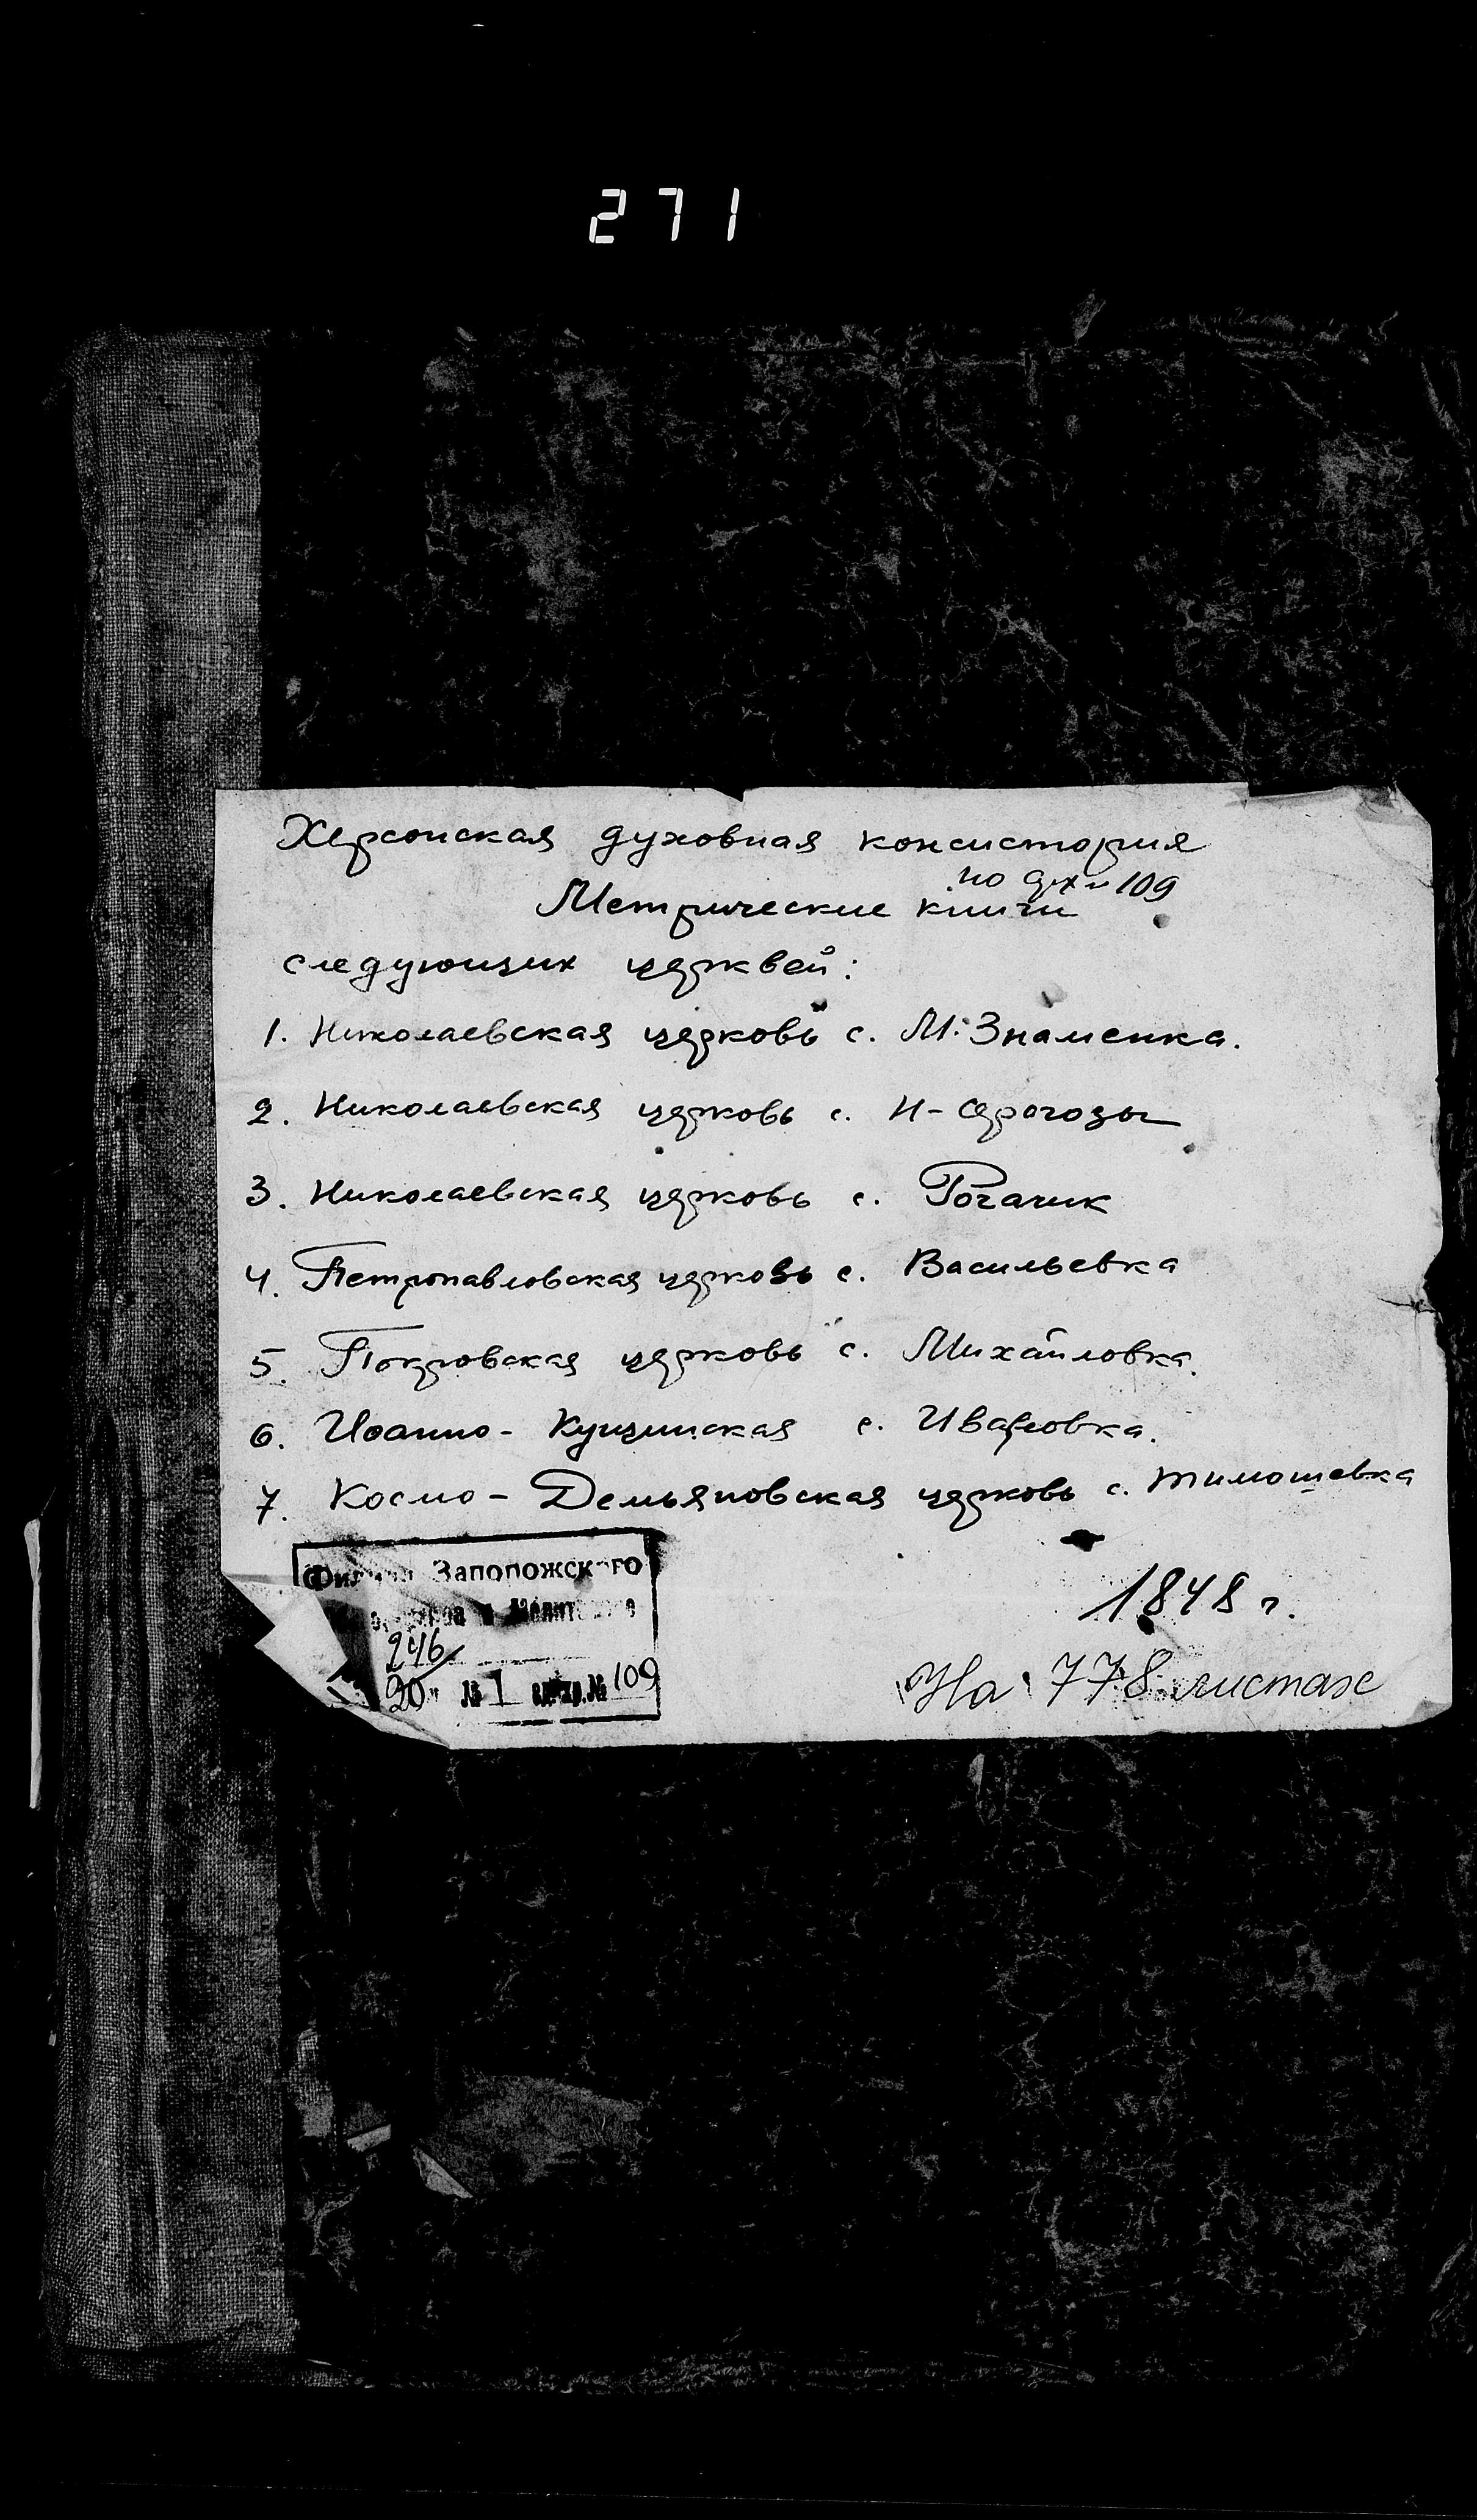 271
Херсонская духовная консистория
по арх. 109
Метрические книги
следующих церквей:
1. Николаевская церковь с. М. Знаменка.
2. Николаевская церковь с. Н-Серогозы
3. Николаевская церковь с. Рогачик
4. Петропавловская церковь с. Васильевка
5. Покровская церковь с. Михайловка.
6. Иоанно- с. Ивановка.
7. Космо-Демьяновская церковь с. Тимошевка
Филиал Запорожского
246
20 № 1 ед.хр.№ 109
1848 г.
На 778 листах